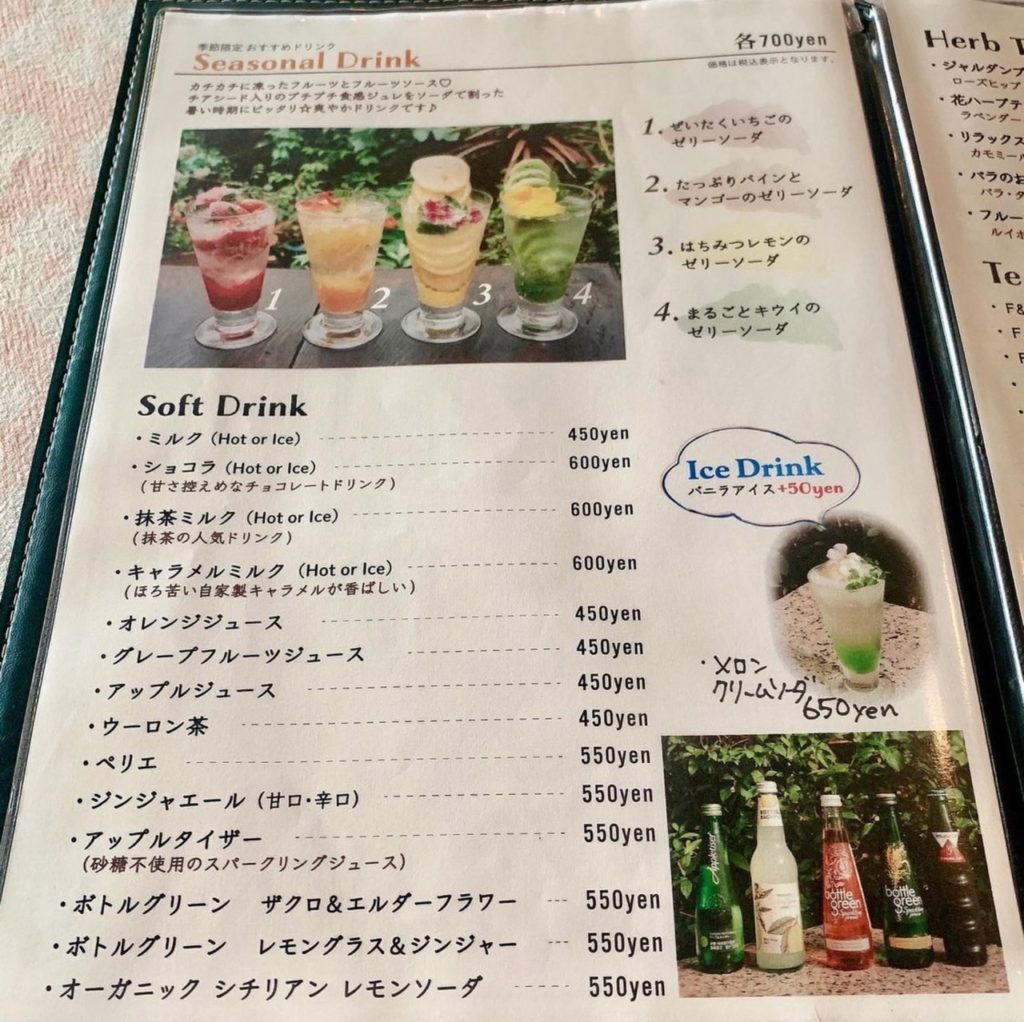 季節限定 おすすめドリンク
Seasonal Drink
各700yen
価格は税込表示となります。
カチカチに凍ったフルーツとフルーツソース♡
チアシード入りのプチプチ食感ジュレをソーダで割った
暑い時期にピッタリ☆爽やかドリンクです♪
1
2
3
4
1. ぜいたくいちごの
ゼリーソーダ
2. たっぷりパインと
マンゴーのゼリーソーダ
3. はちみつレモンの
ゼリーソーダ
4. まるごとキウイの
ゼリーソーダ
Soft Drink
・ミルク (Hot or Ice) 450yen
・ショコラ (Hot or Ice) 600yen
(甘さ控えめなチョコレートドリンク)
・抹茶ミルク (Hot or Ice) 600yen
(抹茶の人気ドリンク)
・キャラメルミルク (Hot or Ice) 600yen
(ほろ苦い自家製キャラメルが香ばしい)
・オレンジジュース 450yen
・グレープフルーツジュース 450yen
・アップルジュース 450yen
・ウーロン茶 450yen
・ペリエ 550yen
・ジンジャエール (甘口・辛口) 550yen
・アップルタイザー 550yen
(砂糖不使用のスパークリングジュース)
・ボトルグリーン ザクロ&エルダーフラワー 550yen
・ボトルグリーン レモングラス&ジンジャー 550yen
・オーガニック シチリアン レモンソーダ 550yen
Ice Drink
バニラアイス+50yen
・メロン
クリームソーダ
650yen
Appletiser
bottle
green
bottle
green
Herb
・ジャルダン
ローズヒップ
・花ハーブ
ラベンダー
・リラックス
カモミール
・バラの
バラ・
・フルー